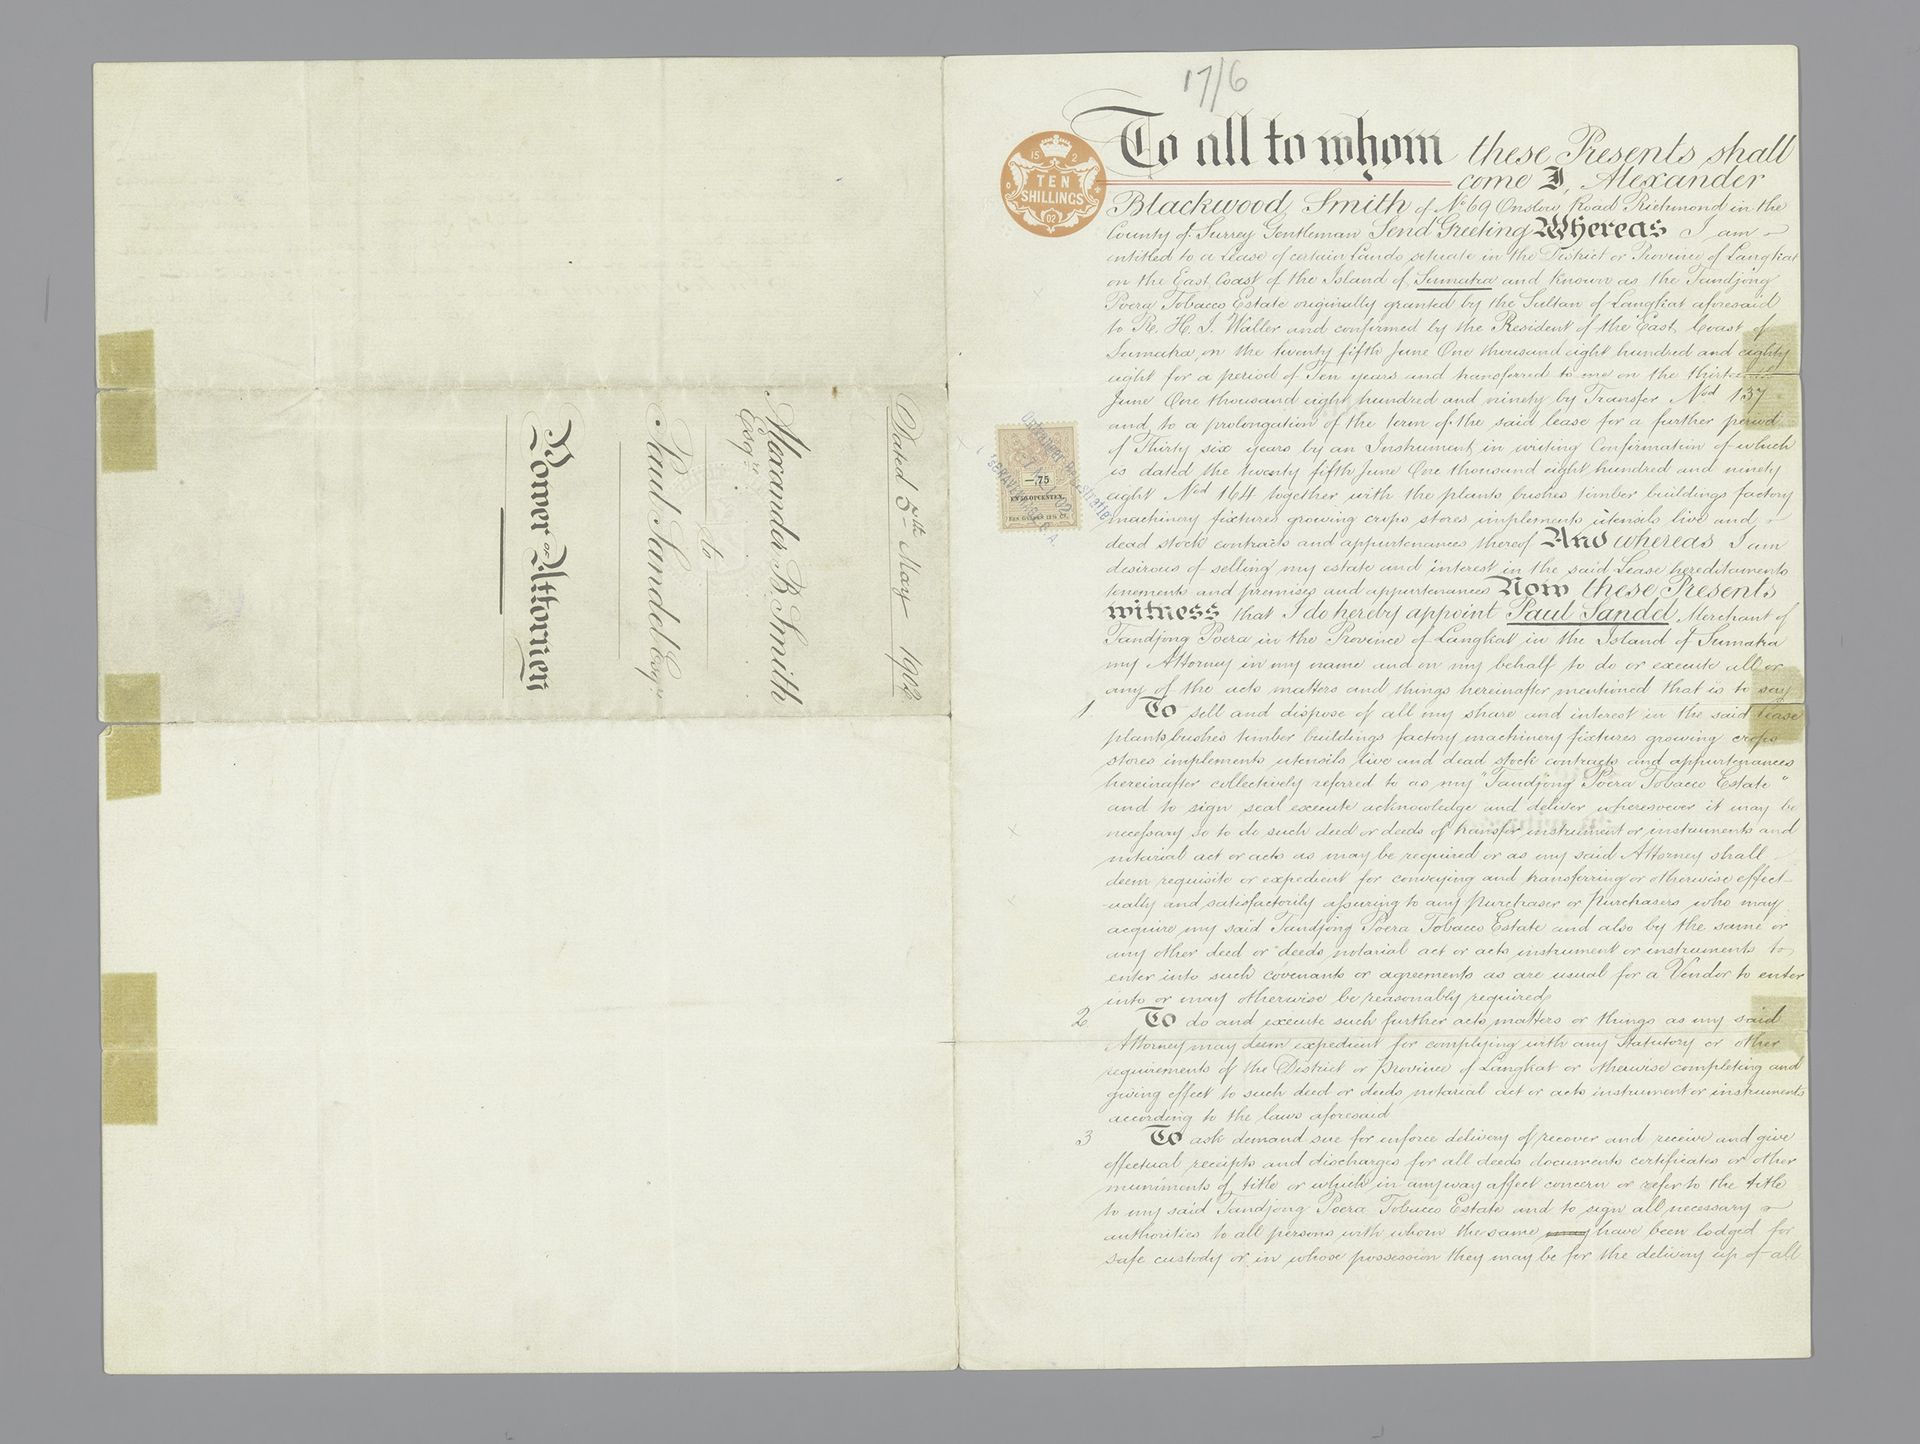 Dated 5th May 1902
Alexander B. Smith
Esqre
to
Paul Sandel Esqre
Power of Attorney
17/6
15 2
TEN
SHILLINGS
02
—,75
To all to whom these Presents shall
come I, Alexander
Blackwood Smith of No 69 Onslow Road Richmond in the
County of Surrey Gentleman Send Greeting Whereas I am
entitled to a Lease of certain Lands situate in the District or Province of Langkat
on the East Coast of the Island of Sumatra and known as the Tandjong
Poera Tobacco Estate originally granted by the Sultan of Langkat aforesaid
to R. H. I. Waller and confirmed by the Resident of the East Coast of
Sumatra, on the twenty fifth June One thousand eight hundred and eighty
eight for a period of Ten years and transferred to me on the
June One thousand eight hundred and ninety by Transfer Nod 137
and to a prolongation of the term of the said lease for a further period
of Thirty six years by an Instrument in writing Confirmation of which
is dated the twenty fifth June One thousand eight hundred and ninety
eight Nod 164 together with the plants bushes timber buildings factory
machinery fixtures growing crops stores implements utensils live and
dead stock contracts and appurtenances thereof And whereas I am
desirous of selling my estate and interest in the said Lease hereditaments
tenements and premises and appurtenances Now these Presents
witness that I do hereby appoint Paul Sandel Merchant of
Tandjong Poera in the Province of Langkat in the Island of Sumatra
my Attorney in my name and on my behalf to do or execute all or
any of the acts matters and things hereinafter mentioned that is to say
1. To sell and dispose of all my share and interest in the said Lease
plants bushes timber buildings factory machinery fixtures growing crops
stores implements utensils live and dead stock contracts and appurtenances
hereinafter collectively referred to as my "Tandjong Poera Tobacco Estate"
and to sign seal execute acknowledge and deliver wheresoever it may be
necessary so to do such deed or deeds of transfer instrument or instruments and
notarial act or acts as may be required or as my said Attorney shall
deem requisite or expedient for conveying and transferring or otherwise effect-
-ually and satisfactorily assuring to any Purchaser or Purchasers who may
acquire my said Tandjong Poera Tobacco Estate and also by the same or
any other deed or deeds notarial act or acts instrument or instruments to
enter into such covenants or agreements as are usual for a Vendor to enter
into or may otherwise be reasonably required
2 To do and execute such further acts matters or things as my said
Attorney may deem expedient for complying with any Statutory or other
requirements of the District or Province of Langkat or otherwise completing and
giving effect to such deed or deeds notarial act or acts instrument or instruments
according to the laws aforesaid
3 To ask demand sue for enforce delivery of recover and receive and give
effectual receipts and discharges for all deeds documents certificates or other
muniments of title or which in anyway affect concern or refer to the title
to my said Tandjong Poera Tobacco Estate and to sign all necessary
authorities to all persons with whom the same have been lodged for
safe custody or in whose possession they may be for the delivery up of all